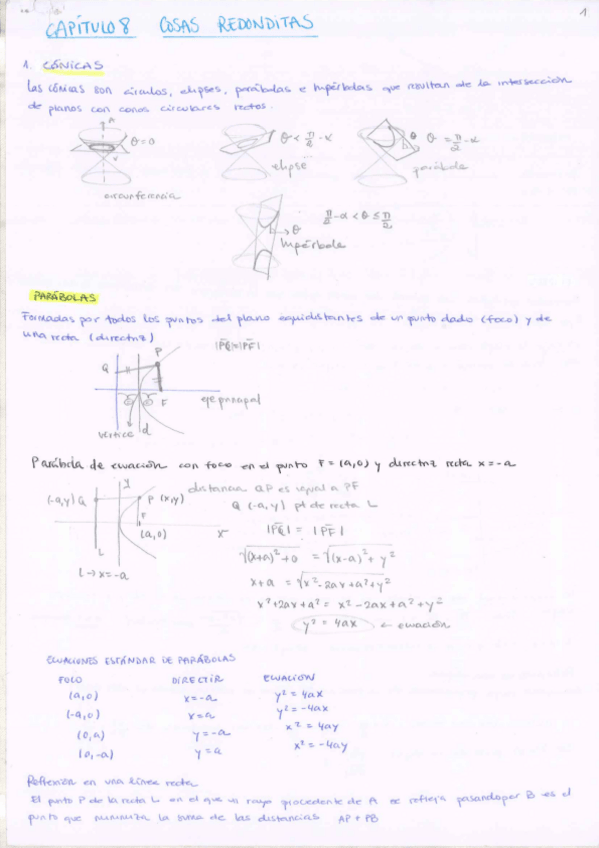 1
CAPÍTULO 8 COSAS REDONDITAS
1. CÓNICAS
Las cónicas son círculos, elipses, parábolas e hipérbolas que resultan de la intersección
de planos con conos circulares rectos.
A
θ=0
V
circunferencia
θ < π/2 - α
elipse
θ θ = π/2 - α
parábola
π/2 - α < θ ≤ π/2
θ
Hipérbola
PARÁBOLAS
Formadas por todos los puntos del plano equidistantes de un punto dado (foco) y de
una recta (directriz)
P
|PQ|=|PF|
Q
F
eje principal
vértice d
Parábola de ecuación con foco en el punto F=(a,0) y directriz recta x=-a
y
distancia QP es igual a PF
(-a,y) Q P (x,y)
Q (-a,y) pt de recta L
F
(a,0) x
|PQ| = |PF|
L
√(x+a)²+0 = √(x-a)²+y²
L→x=-a
x+a = √x²-2ax+a²+y²
x²+2ax+a² = x²-2ax+a²+y²
y² = 4ax ← ecuación
ECUACIONES ESTÁNDAR DE PARÁBOLAS
FOCO DIRECTIR ECUACIÓN
(a,0) x=-a y²=4ax
(-a,0) x=a y²=-4ax
(0,a) y=-a x²=4ay
(0,-a) y=a x²=-4ay
Reflexión en una línea recta
El punto P de la recta L en el que un rayo procedente de A se refleja pasando por B es el
punto que minimiza la suma de las distancias AP+PB